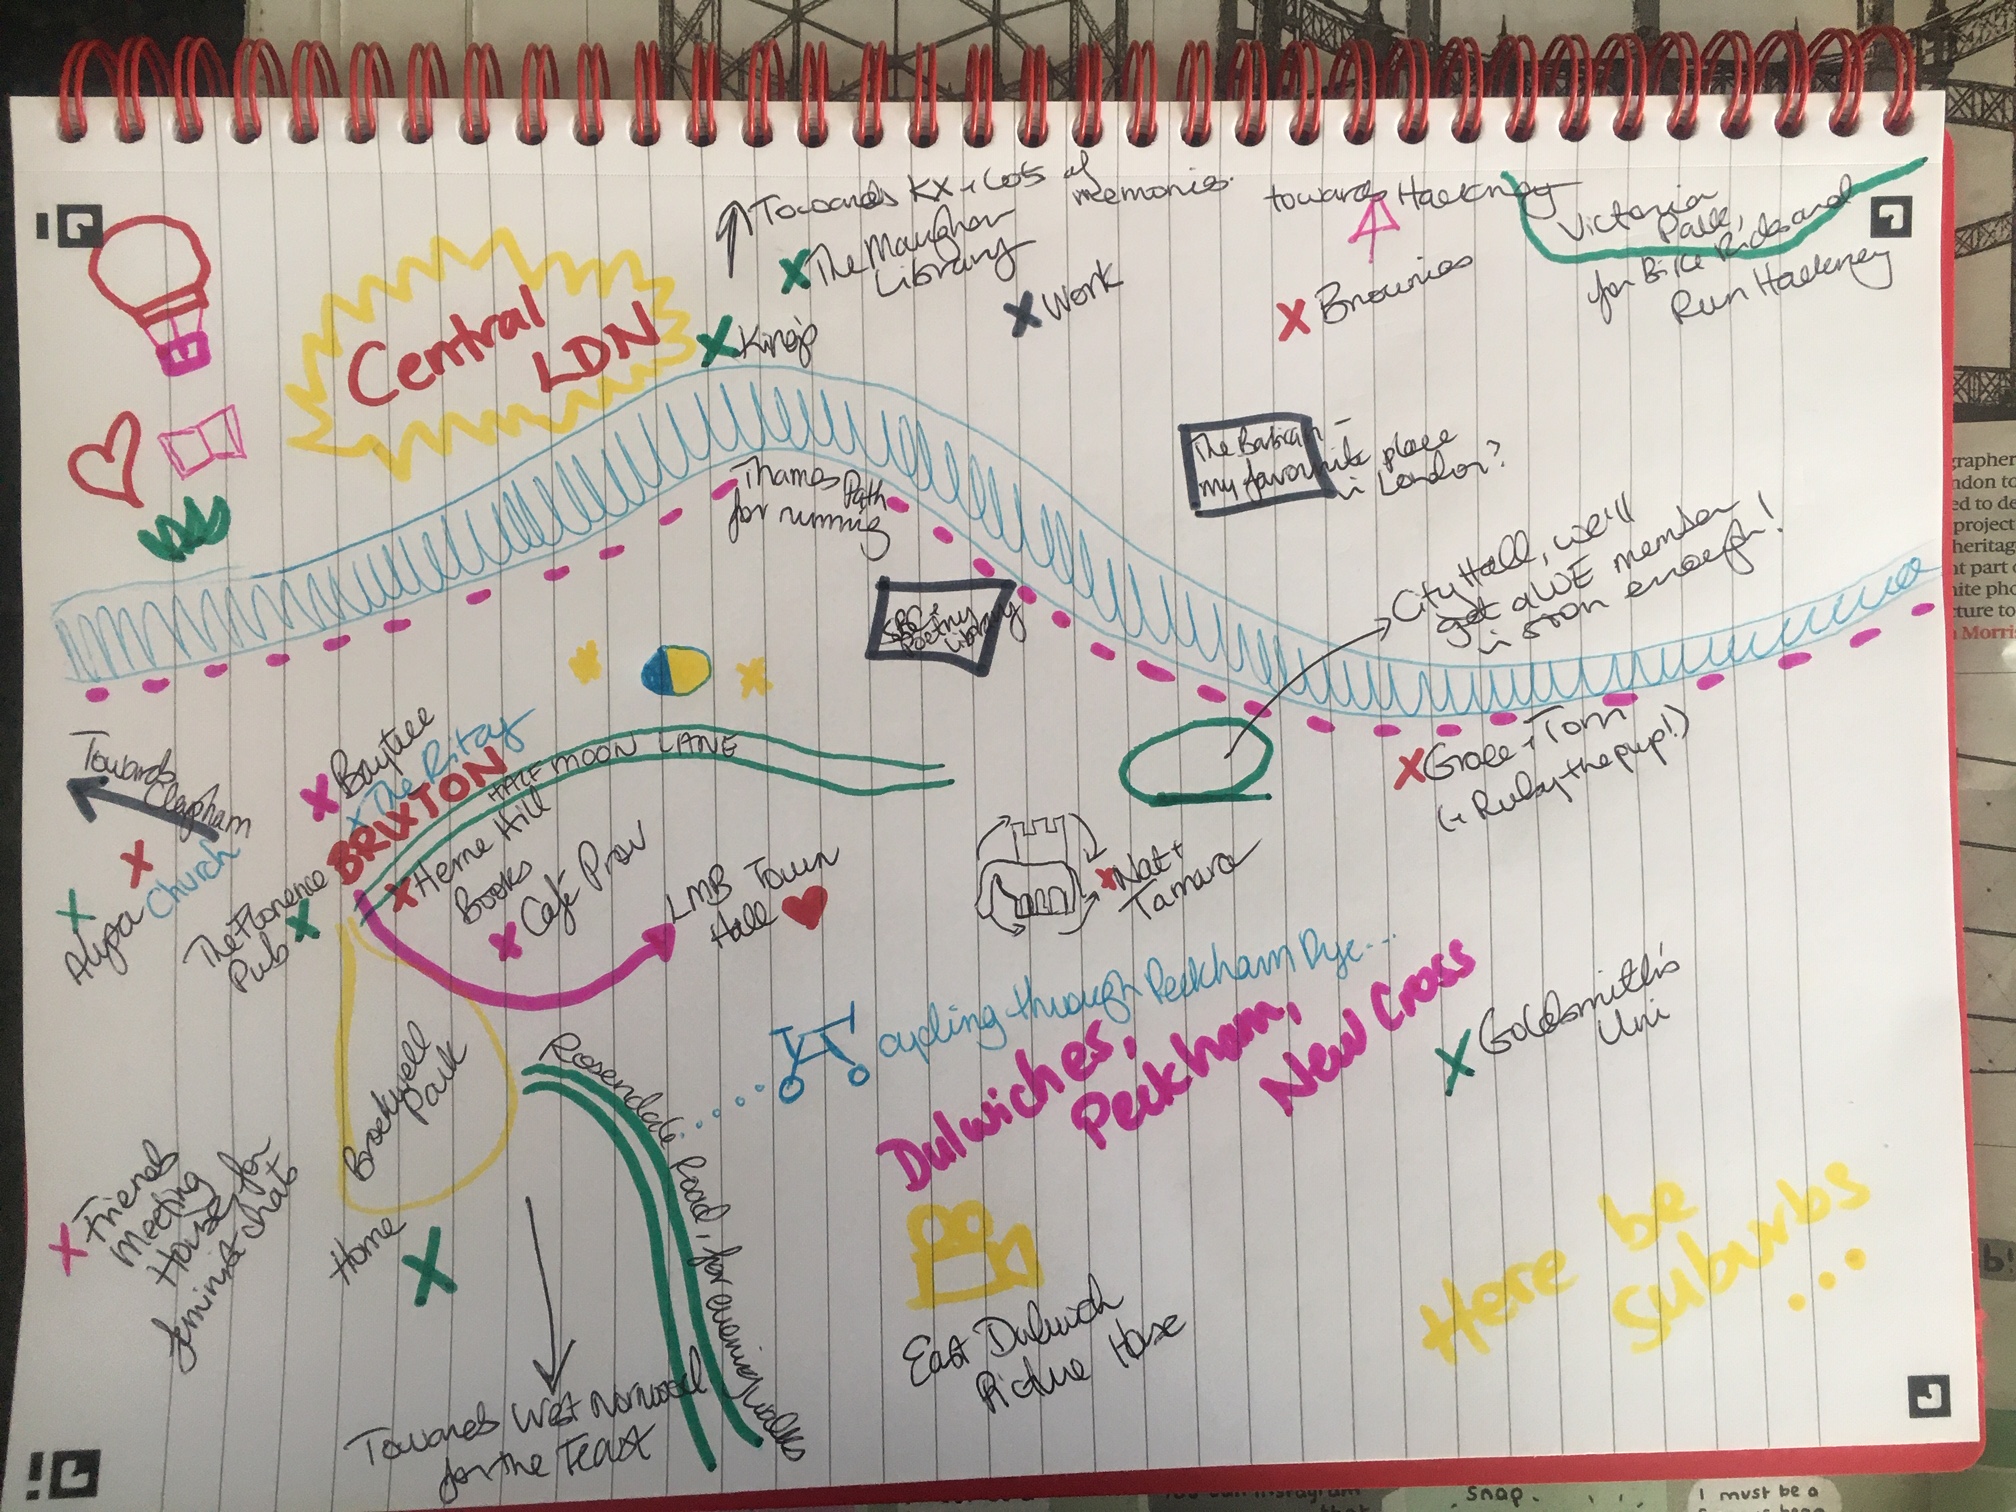 Towards KX + lots of
memories.
The Maughan
Library
King's
Work
towards Hackney
Brownies
Victoria
Park,
for Bike Rides and
Run Hackney
Central
LDN
Thames Path
for running
The Barbican -
my favourite place
in London?
City Hall, we'll
get a WE member
in soon enough!
SBC +
Poetry
Library
Towards
Clapham
Church
Alyssa
Baytree
The Ritzy
BRIXTON
HALF MOON LANE
Herne Hill
Books
Café Prov
The Florence
Pub
LMB Town
Hall
Nat +
Tamara
Grace + Tom
(+ Ruby the pup!)
Brockwell
Park
Home
Friends
Meeting
House for
feminist chats
Rosendale Road, for evening walks
cycling through Peckham Rye...
Dulwiches,
Peckham,
New Cross
Goldsmith's
Uni
East Dulwich
Picture House
Here be
suburbs
...
Towards West Norwood
for the Feast
grapher
ndon to
ed to de
project
heritag
nt part o
nite pho
cture to
Morris
snap.
I must be a